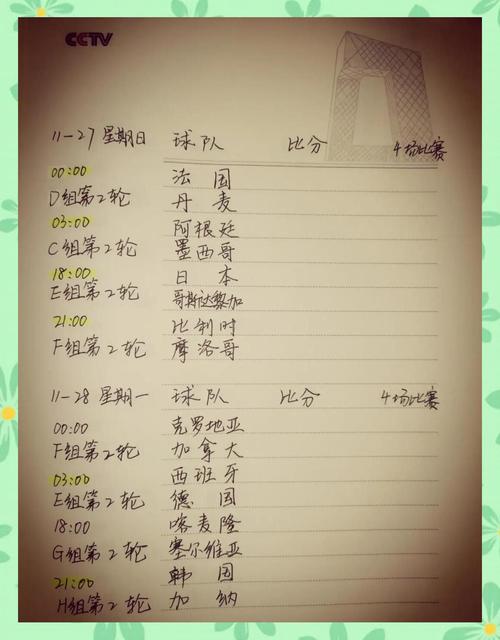 CCTV
11-27 星期日 球队 比分 4场比赛
00:00 法国
D组第2轮 丹麦
03:00 阿根廷
C组第2轮 墨西哥
18:00 日本
E组第2轮 哥斯达黎加
21:00 比利时
F组第2轮 摩洛哥
11-28 星期一 球队 比分 4场比赛
00:00 克罗地亚
F组第2轮 加拿大
03:00 西班牙
E组第2轮 德国
18:00 喀麦隆
G组第2轮 塞尔维亚
21:00 韩国
H组第2轮 加纳